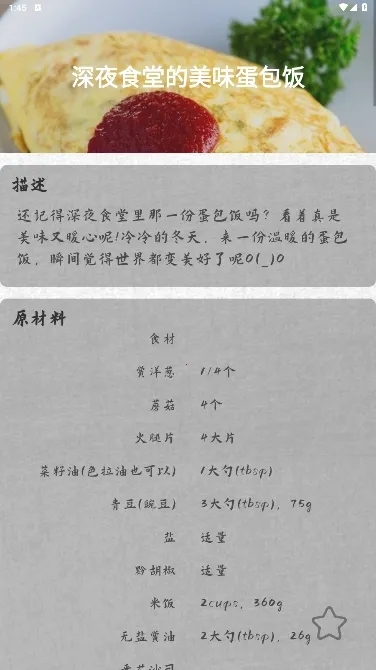 1:45
深夜食堂的美味蛋包饭
描述
还记得深夜食堂里那一份蛋包饭吗？看着真是
美味又暖心呢!冷冷的冬天，来一份温暖的蛋包
饭，瞬间觉得世界都变美好了呢O(_)O
原材料
食材
黄洋葱 1/4个
蘑菇 4个
火腿片 4大片
菜籽油(色拉油也可以) 1大勺(tbsp)
青豆(豌豆) 3大勺(tbsp)，75g
盐 适量
黔胡椒 适量
米饭 2cups，360g
无盐黄油 2大勺(tbsp)，26g
番茄沙司